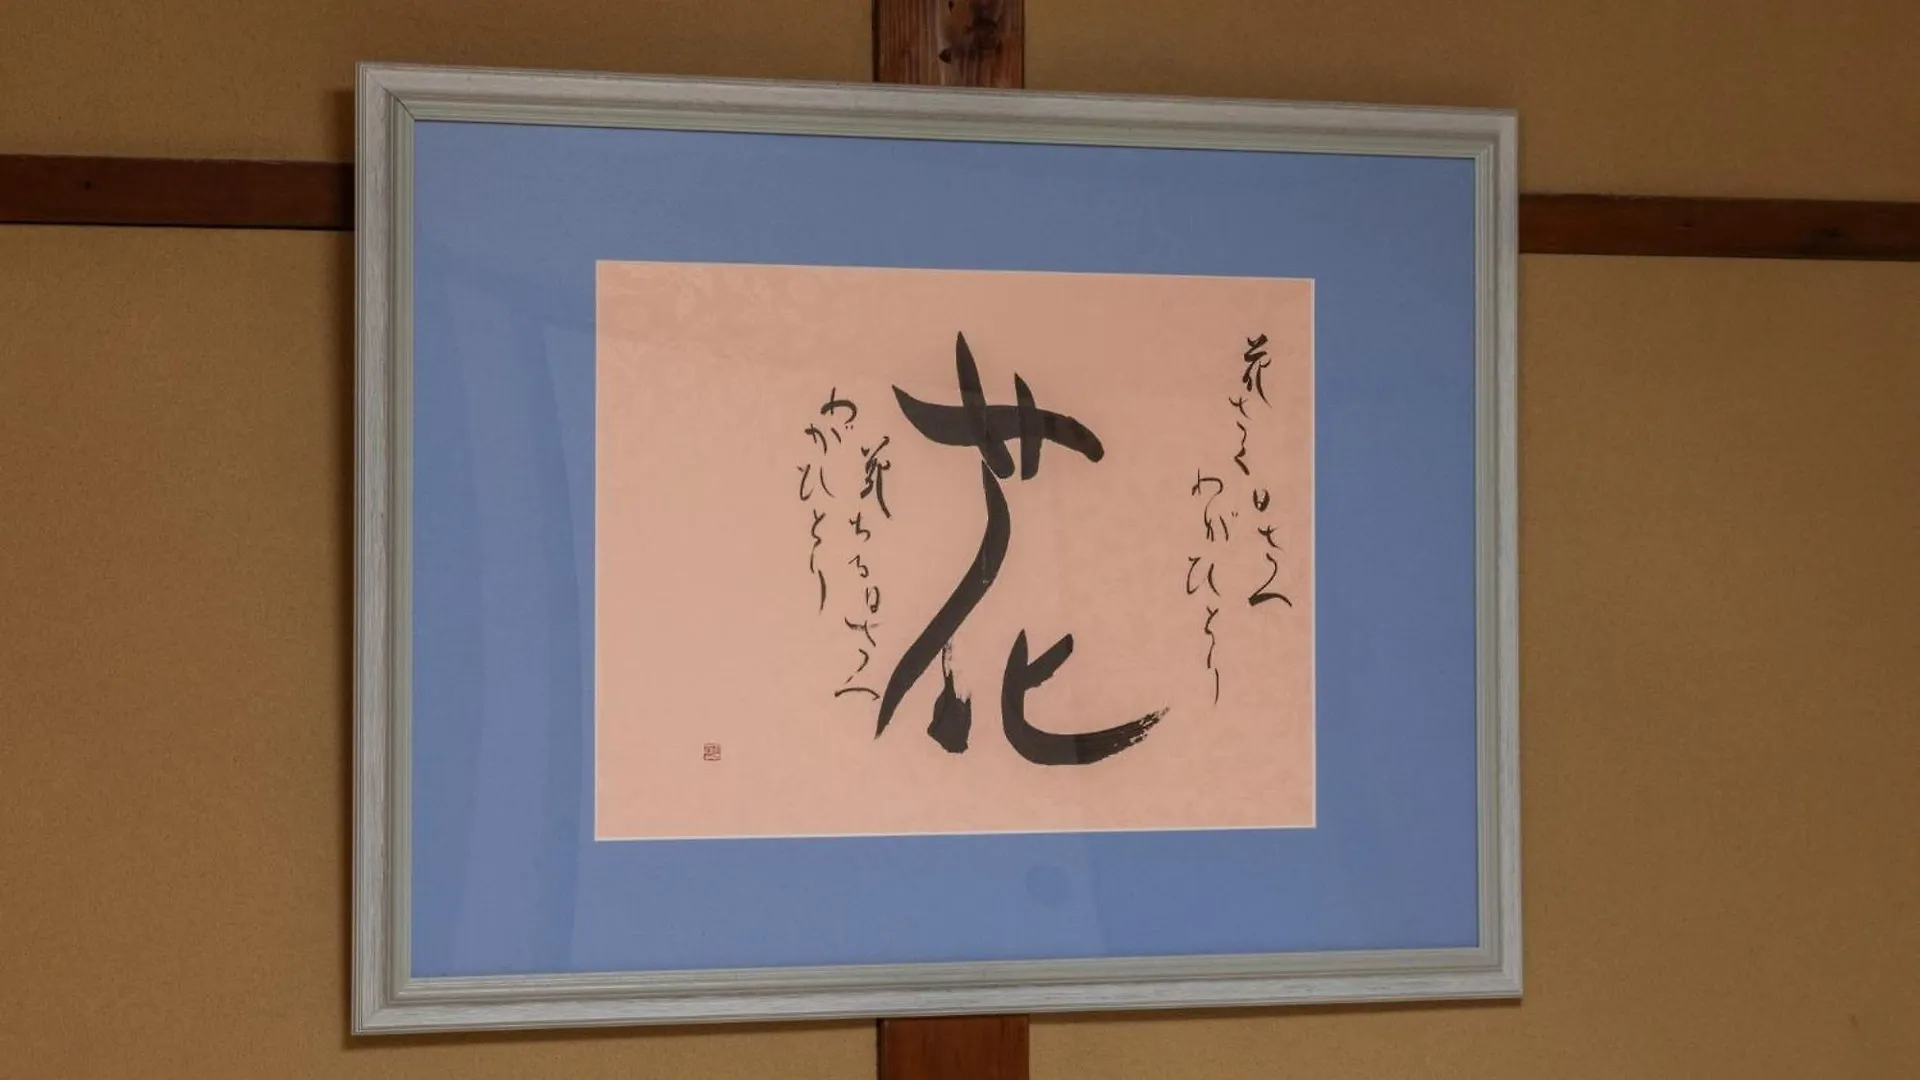 花さく日さへ
わがひとり
花
花ちる日さへ
わがひとり